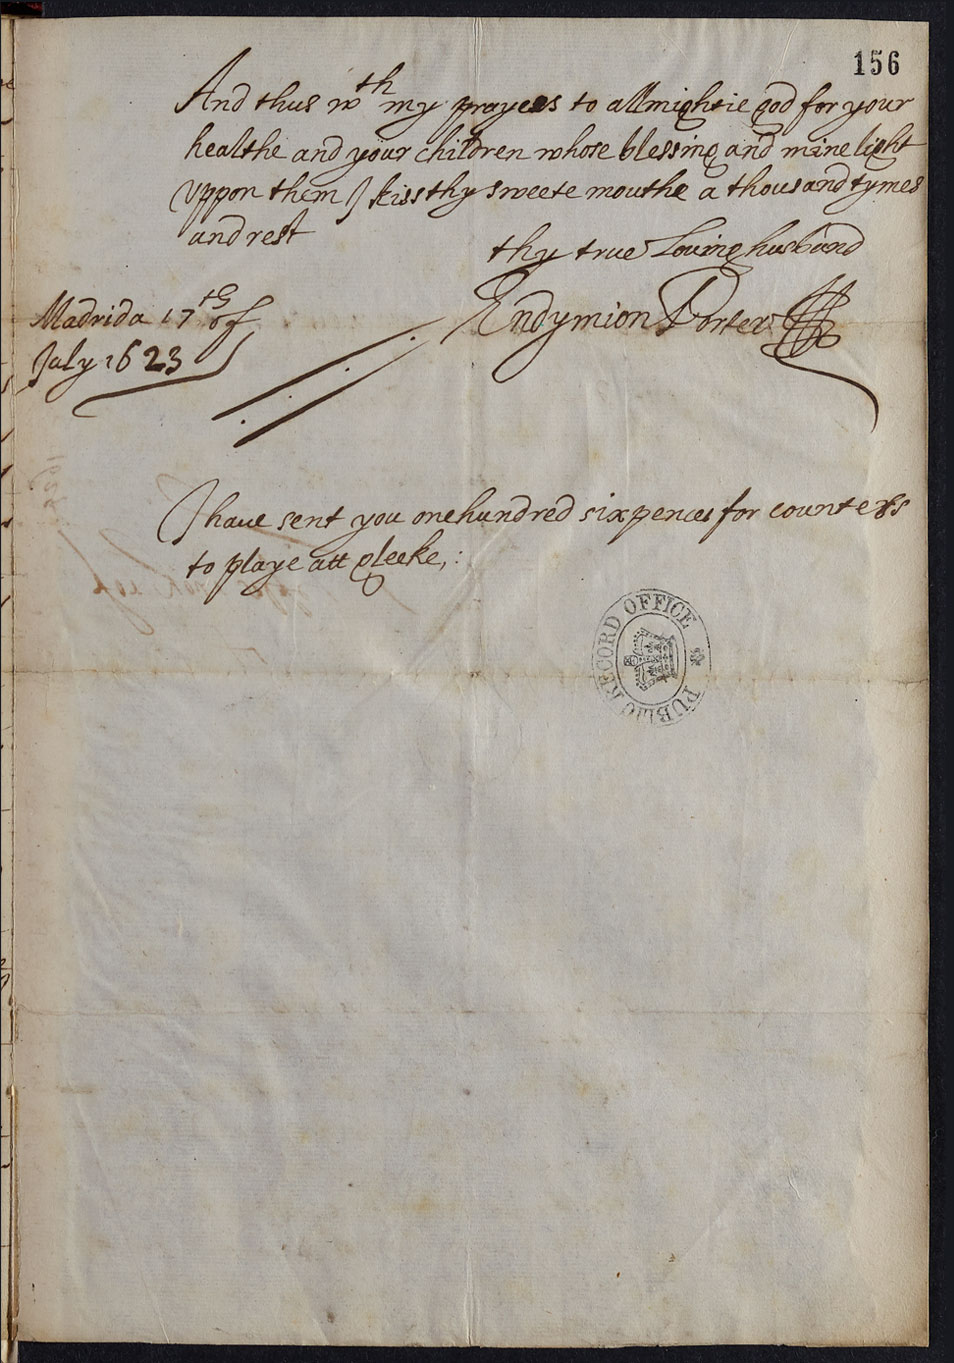 156
And thus wth my prayers to allmightie god for your
healthe and your children whose blessing and mine light
Vppon them I kiss thy sweete mouthe a thousand tymes
and rest
thy true Loving husband
Endymion Porter
Madrida 17th of
July 1623
I haue sent you one hundred sixpences for counterss
to playe att gleeke,:
PUBLIC RECORD OFFICE